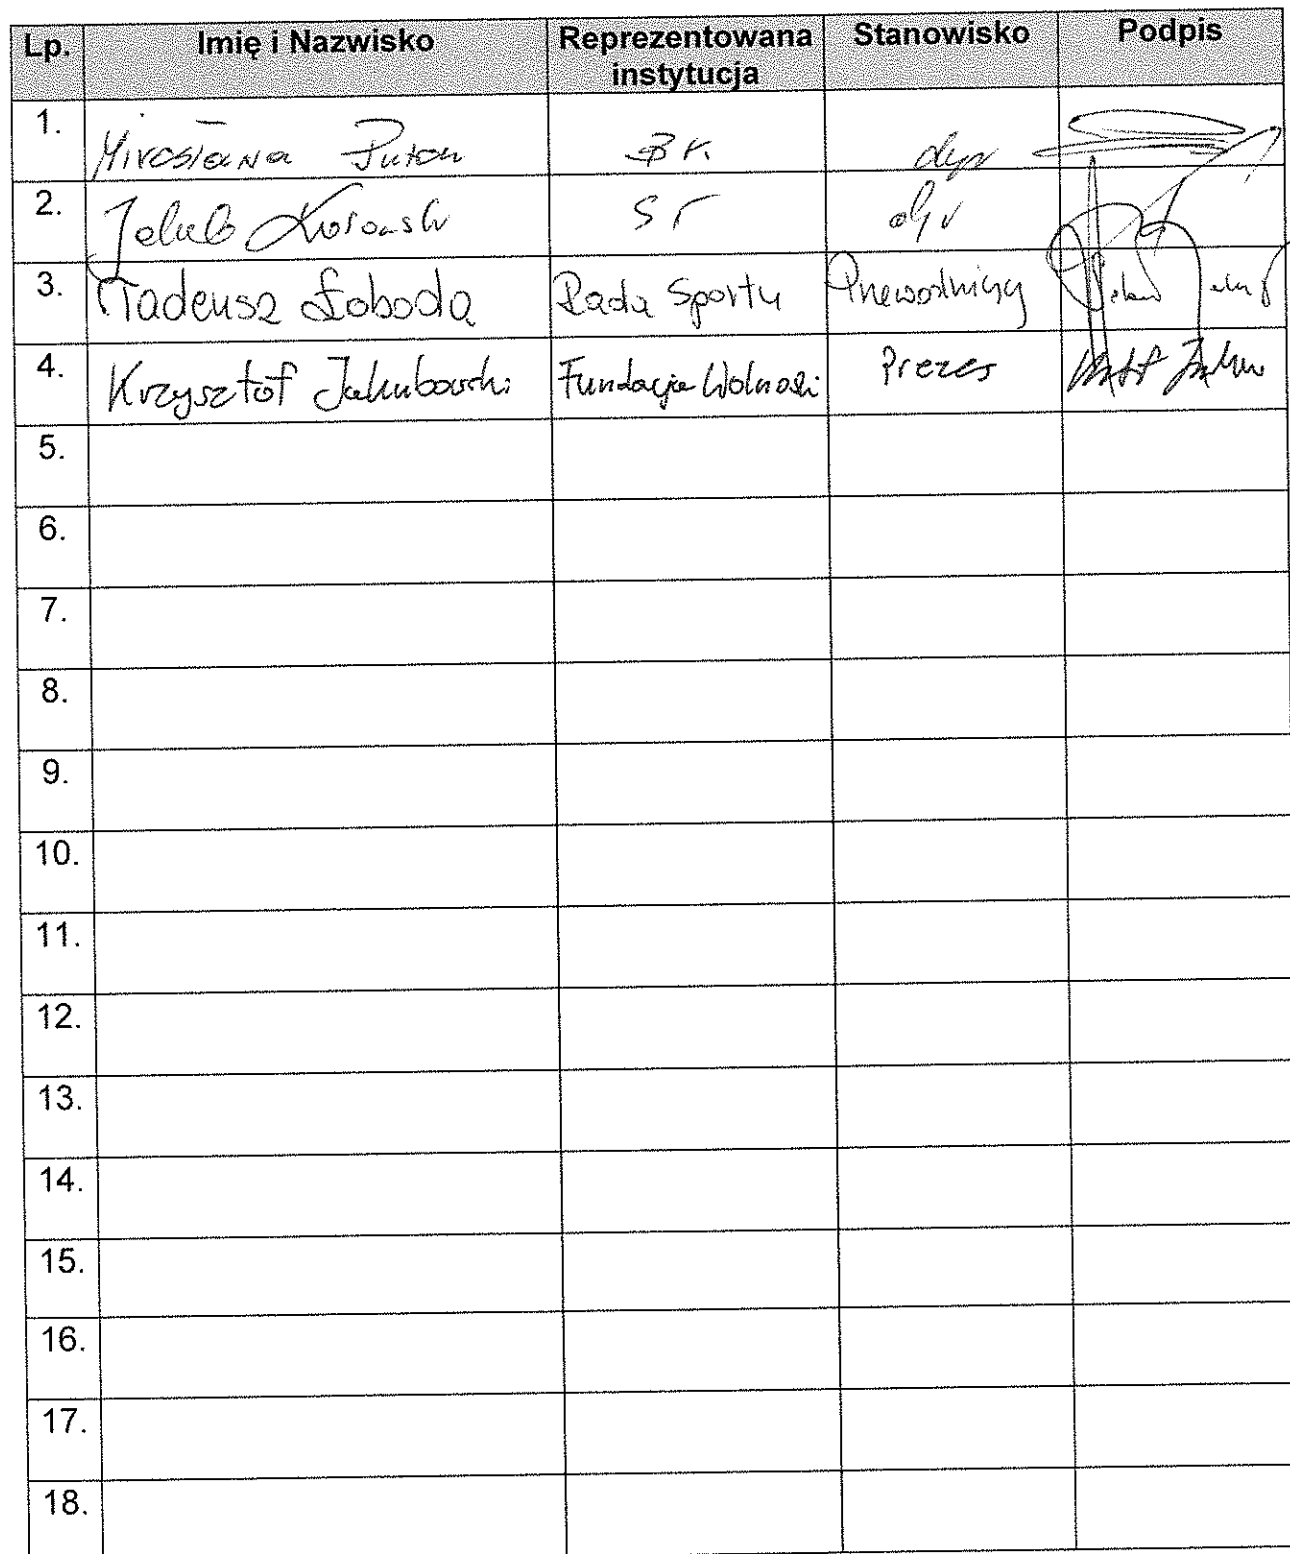 Lp. Imię i Nazwisko Reprezentowana instytucja Stanowisko Podpis
1. Mirosława Puton BK. dyr
2. Jakub ST dyr
3. Tadeusz Łoboda Rada Sportu Przewodniczący
4. Krzysztof Jakubowski Fundacja Wolności Prezes
5.
6.
7.
8.
9.
10.
11.
12.
13.
14.
15.
16.
17.
18.